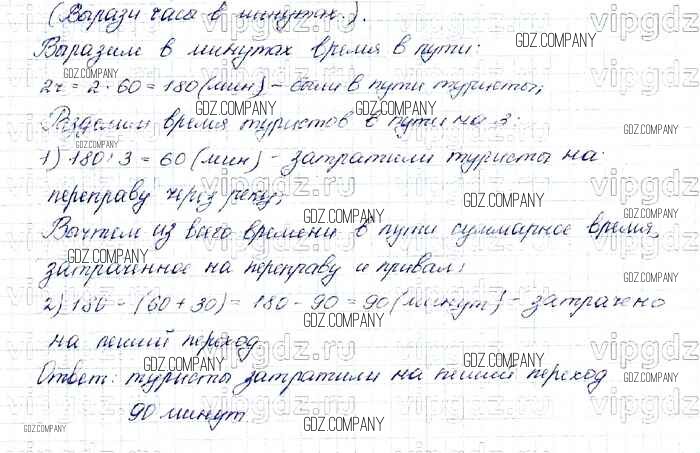 (Вырази часы в минутах.).
Выразим в минутах время в пути:
2ч = 2 · 60 = 180 (мин) - были в пути туристы;
Разделим время туристов в пути на 3:
1) 180 : 3 = 60 (мин) - затратили туристы на
переправу через реку;
Вычтем из всего времени в пути суммарное время,
затраченное на переправу и привал:
2) 180 - (60 + 30) = 180 - 90 = 90 (минут) - затрачено
на пеший переход.
Ответ: туристы затратили на пеший переход
90 минут.